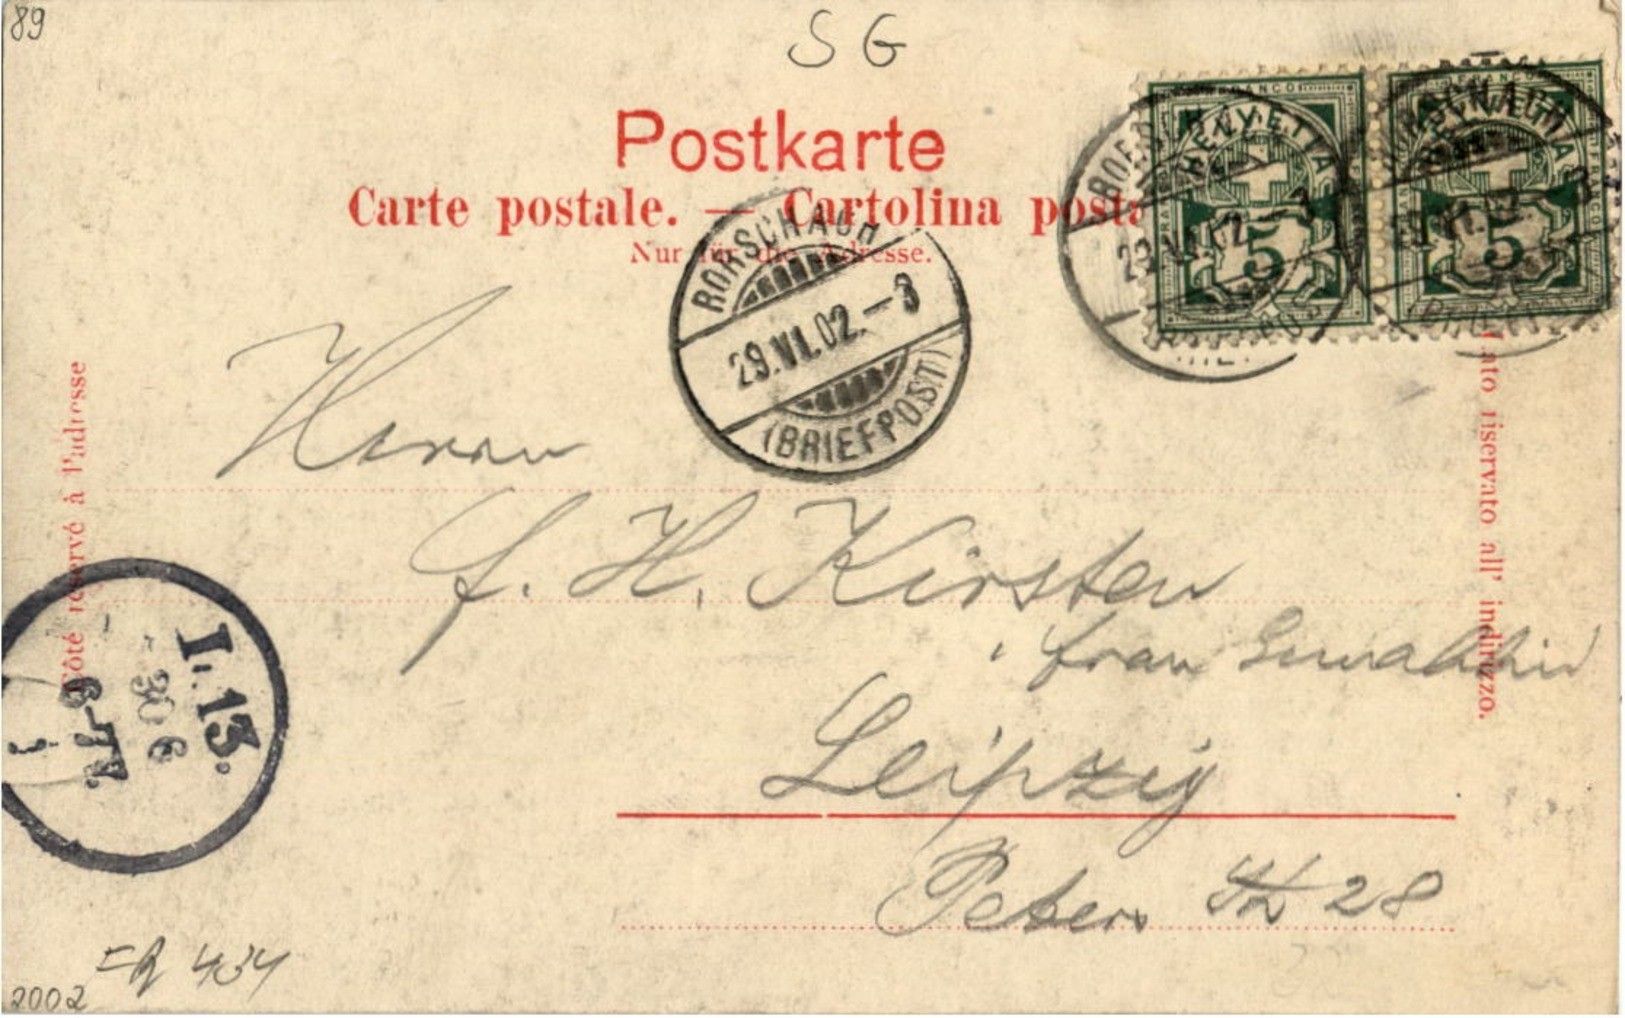 89
SG
Postkarte
Carte postale. — Cartolina posta
Nur für die Adresse.
HELVETIA
5
HELVETIA
5
RORSCHACH
29.VI.02.-3
(BRIEFPOST)
29.VI.02.-3
Côté réservé à l'adresse
Lato riservato all' indirizzo.
Herrn
f. H. Kirsten
Frau
Leipzig
Peters Str 28
L.13.
30 6
6-7N.
434
2002